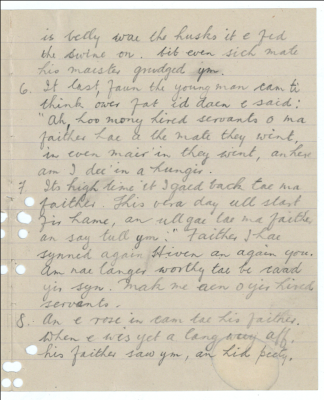 is belly wae the husks it e fed
the swine on. bit even sich mate
his maister grudged ym.
6. It last, faun the young man cam ti
think over fat id daen e said:
"Ah, hoo mony hired servants o ma
faither hae a the mate they wint,
in even mair in they wint, an here
am I dee'in a hunger.
7. Its high time it I gaed back tae ma
faither. This vera day ull start
fir hame, an ull gae tae ma faither
an say tull ym:" Faither I hae
synned again Hiven an again you.
Am nae langer worthy tae be caad
yir syn. Mak me aen o yir hired
servants.
8. An e rose in cam tae his faither.
When e wis yet a lang wey aff,
his faither saw ym, an hid peety,